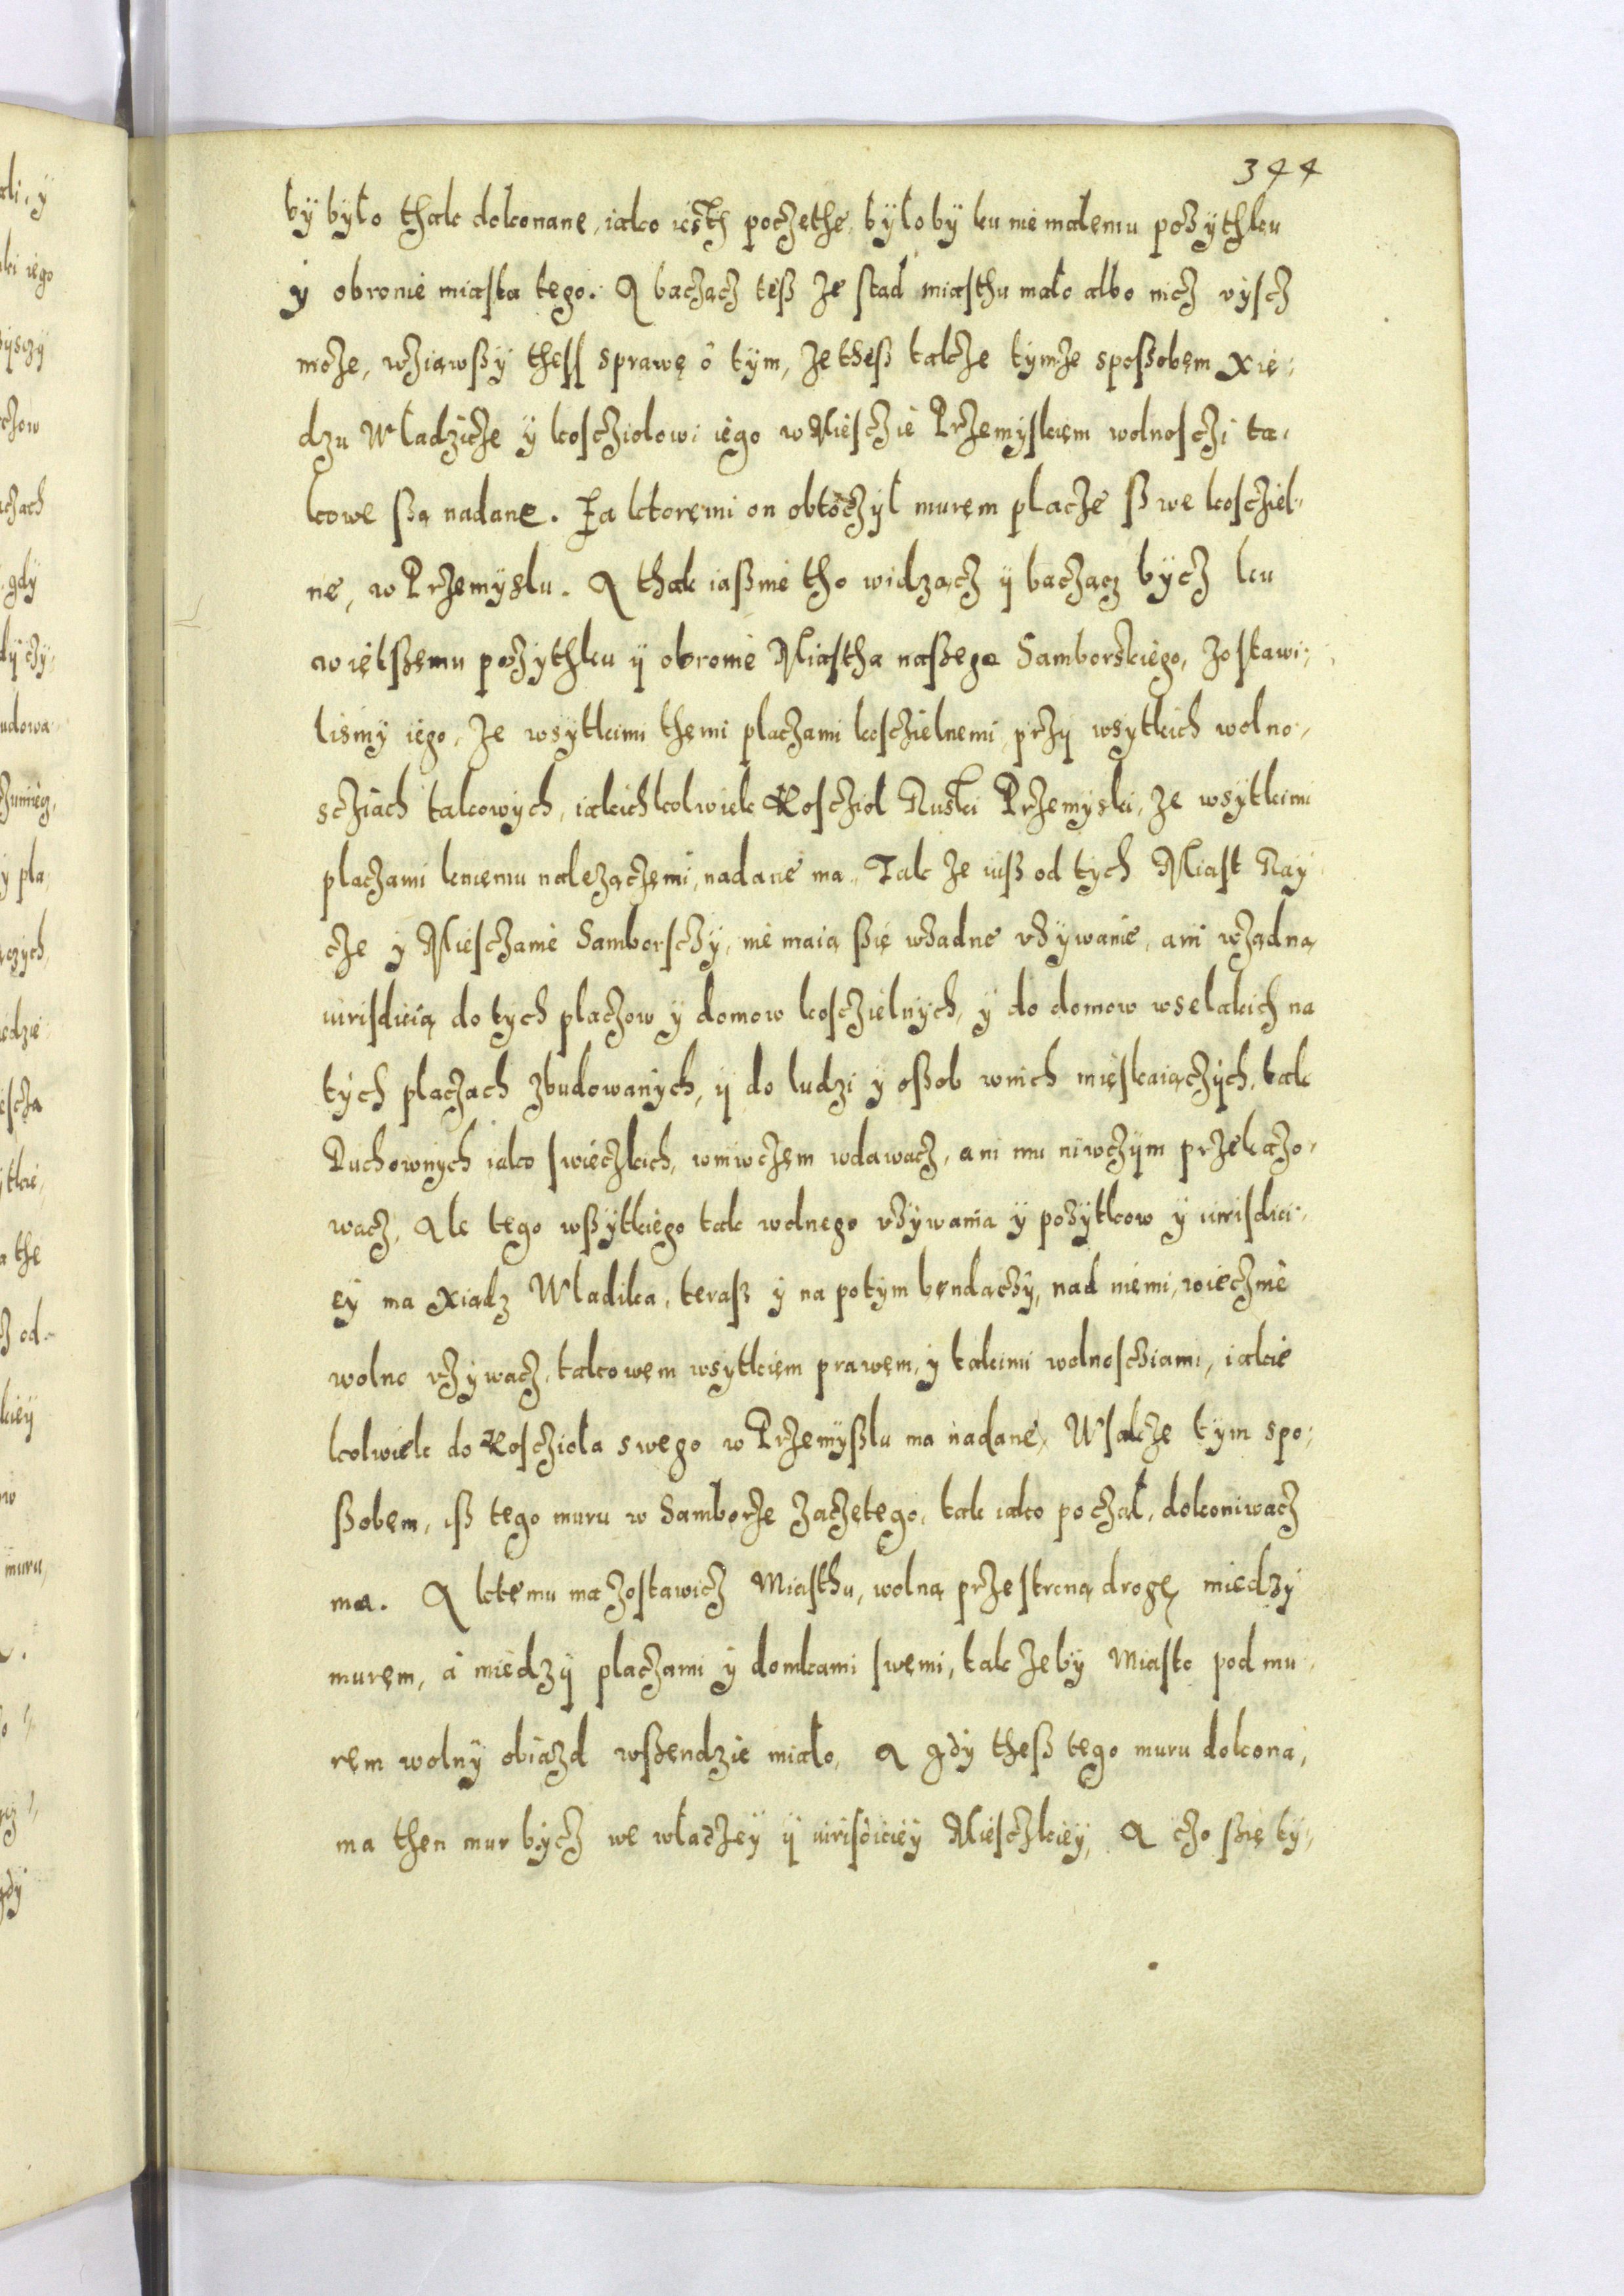 344
by było thak dokonane, iako iesth poczethe, byloby ku nie małemu pożythku
y obronie miasta tego. A bacząch tesz ze stad miasthu mało albo nicz vyscz
może, wziąwszy thess sprawę o tym, ze thesz także tymże sposzobem Xię-
dzu Wladzicze y koscziolowi iego w Miesczie Przemyskiem wolnosczi ta-
kowe szą nadane. Za ktoremi on obtoczył murem placze szwe kosczieł-
ne, w Przemyslu. A thak iaszmie tho widzącz y bacząc bycz ku
więtszemu pożythku y obronie Miastha naszego Samborskiego, zostawi-
lismy iego, ze wsytkimi themi placzami kosczielnemi, przy wsytkich wolno-
scziach takowych, iakichkolwiek Kosczioł Ruski Przemyski, ze wsytkimi
placzami kniemu należączemi, nadane ma. Tak że iusz od tych Miast Ray
cze y Miesczanie Samborsczy, nie maią szię wżadne vżywanie, ani wżądną
iurisdicią do tych placzow y domow kosczielnych, y do domow wselakich na
tych placzach zbudowanych, y do ludzi y oszob wnich mieskaiączych, tak
Duchownych iako swieczkich, wniwczem wdawacz, ani mu niwczym przekazo-
wacz, Ale tego wszytkiego tak wolnego vżywania y pożytkow y iurisdici-
ey ma Xiądz Wladika, terasz y na potym bendączy, nad niemi, wiecznie
wolno vżywacz, takowem wsytkiem prawem, y takimi wolnoscziami, iakie
kolwiek do Kosczioła swego w Przemyszlu ma nadane, Wsakże tym spo-
szobem, isz tego muru w Samborze zaczętego, tak iako poczał, dokoniwacz
ma. A ktemu ma zostawicz Miasthu, wolną przestroną drogę miedzy
murem, a miedzy placzami y domkami swemi, tak żeby Miasto pod mu-
rem wolny obiazd wszendzie miało, A gdy thesz tego muru dokona,
ma then mur bycz we wladzey y iurisdiciey Miesczkiey, A czo szię ty-